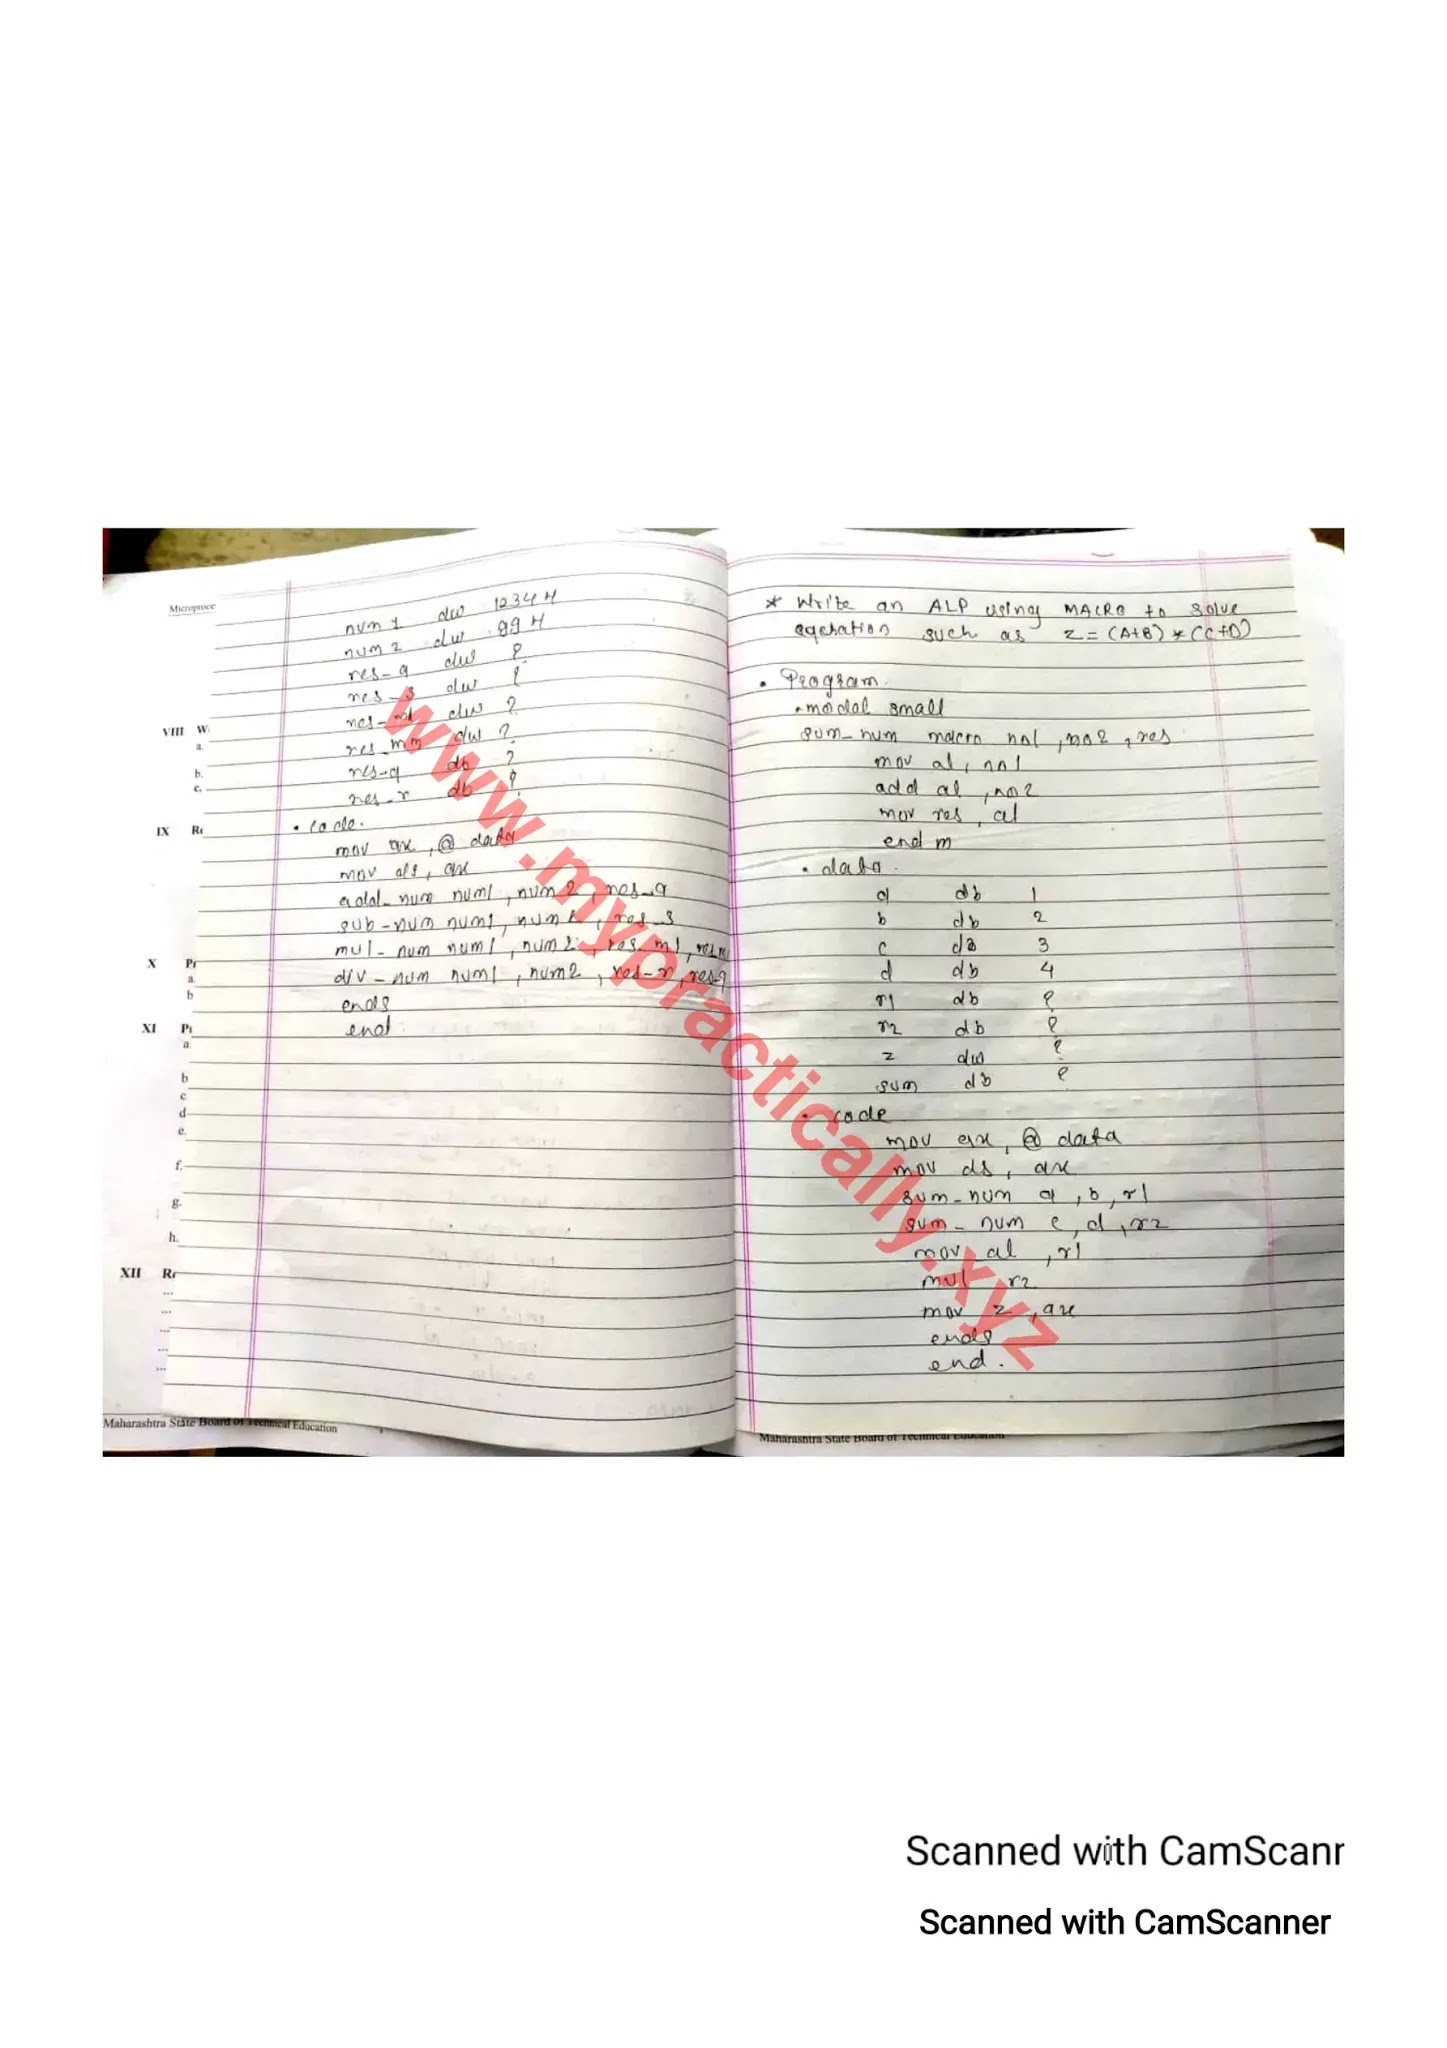 Microproce
num1 dw 1234H
num2 dw 99H
res_a dw ?
res_s dw ?
res_ml dw ?
res_mm dw ?
res_q db ?
res_r db ?
.code.
mov ax, @data
mov ds, ax
add_num num1, num2, res_a
sub_num num1, num2, res_s
mul_num num1, num2, res_ml, res_m
div_num num1, num2, res_r, res_q
ends
end
VIII W.
a.
b.
c.
IX Re
X Pr
a
b
XI Pr
a.
b
c
d
e.
f.
g.
h.
XII Re
...
...
...
...
...
Maharashtra State Board of Technical Education
* Write an ALP using MACRO to solve
eqeration such as z = (A+B) * (C+D)
• Program.
.modal small
sum_num macro no1, no2, res
mov al, no1
add al, no2
mov res, al
end m
.data.
a db 1
b db 2
c db 3
d db 4
r1 db ?
r2 db ?
z dw ?
sum db ?
.code
mov ax, @data
mov ds, ax
sum_num a, b, r1
sum_num c, d, r2
mov al, r1
mul r2
mov z, ax
ends
end.
Maharashtra State Board of Technical Education
www.mypractically.xyz
Scanned with CamScanr
Scanned with CamScanner